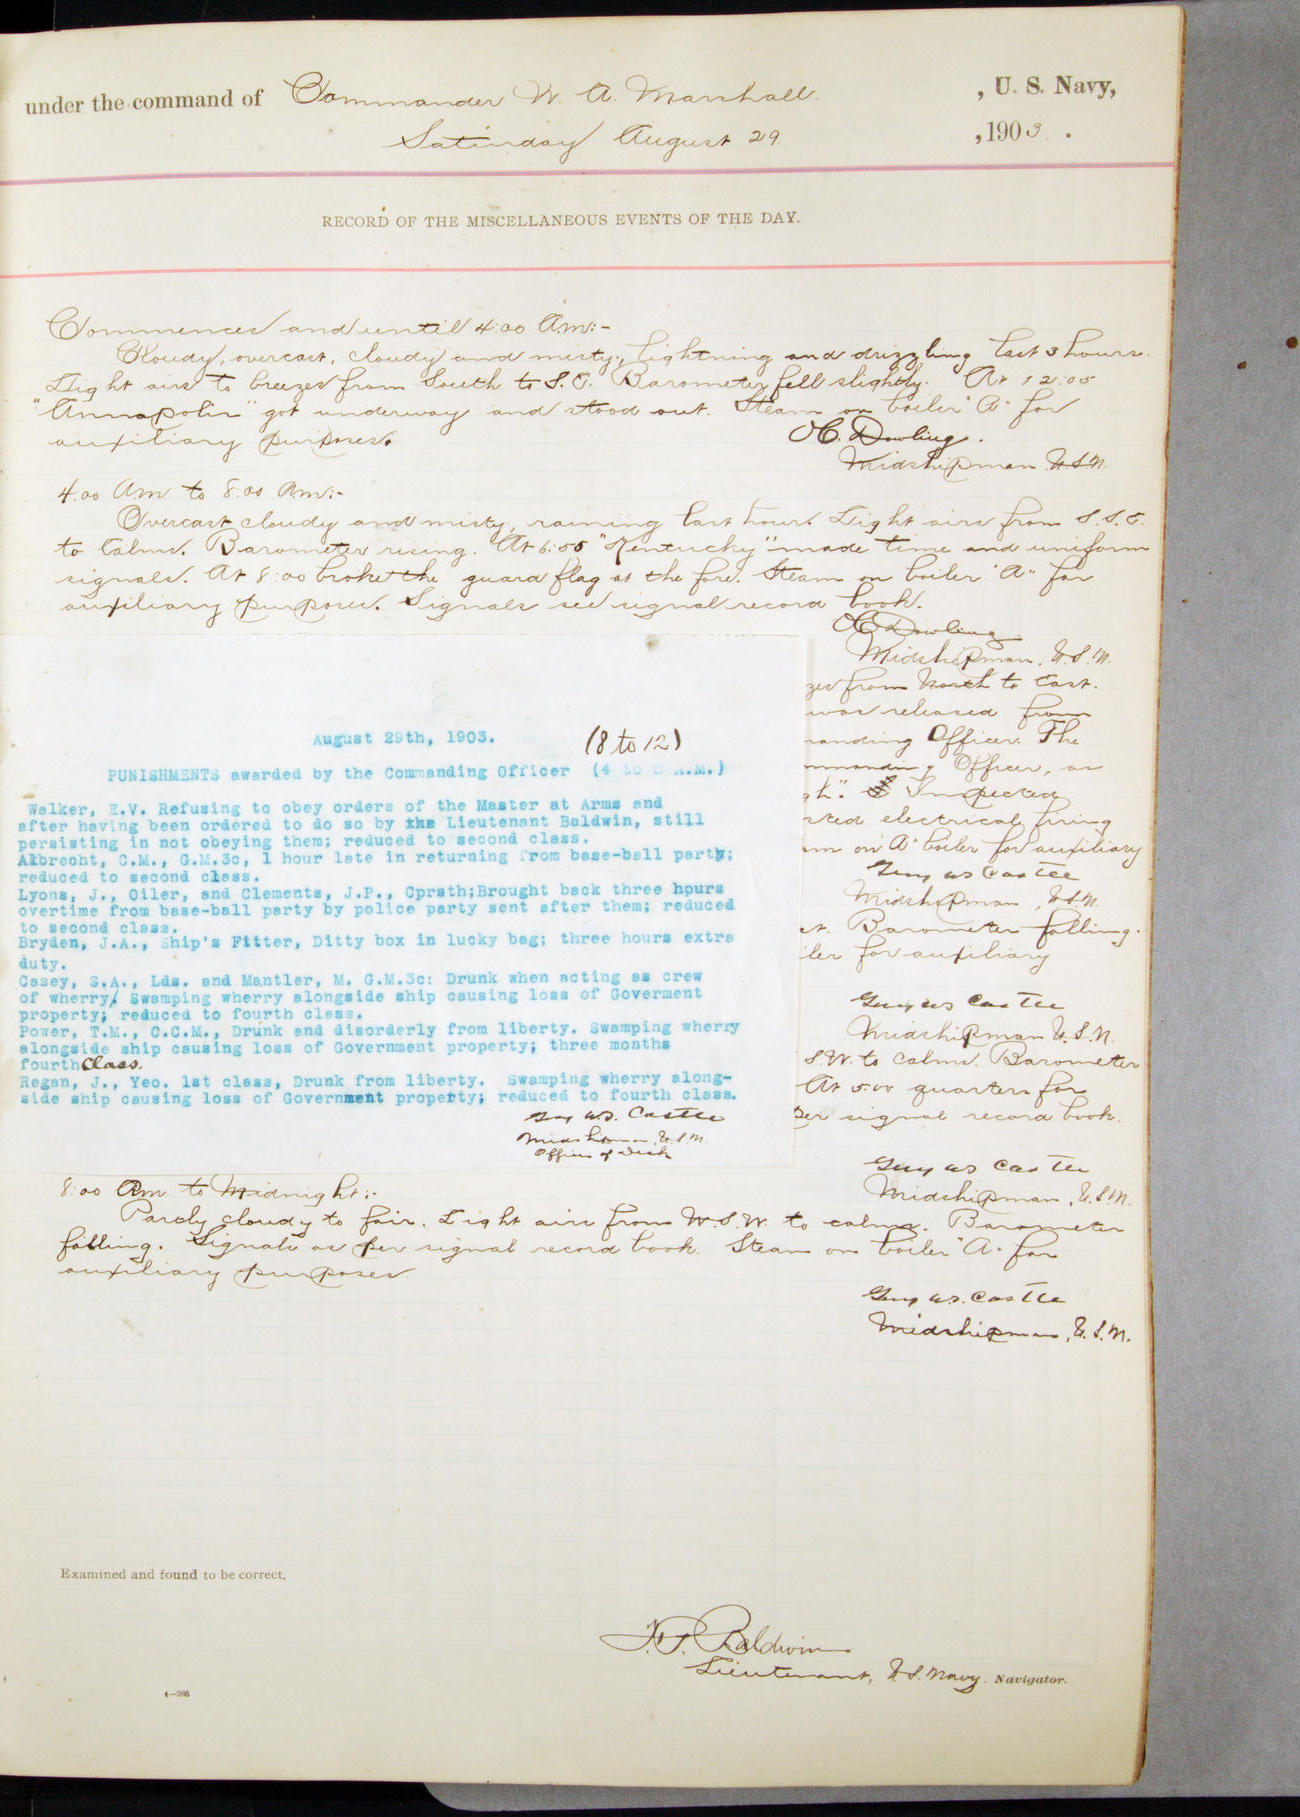 under the command of Commander W. A. Marshall , U. S. Navy,
Saturday August 29 , 1903 .
RECORD OF THE MISCELLANEOUS EVENTS OF THE DAY.
Commences and until 4:00 A.m:-
Cloudy, overcast, cloudy and misty, lightning and drizzling last 3 hours.
Light airs to breezes from South to S.E. Barometer fell slightly. At 12:05
"Annapolis" got underway and stood out. Steam on boiler "A" for
auxiliary purposes.
Dowling.
Midshipman U.S.N.
4:00 A.m. to 8:00 A.m:-
Overcast cloudy and misty, raining last hour. Light airs from S.S.E.
to calms. Barometer rising. At 6:55 "Kentucky" made time and uniform
signals. At 8:00 broke the guard flag at the fore. Steam on boiler "A" for
auxiliary purposes. Signals see signal record book.
Dowling
Midshipman, U.S.N.
zes from North to East.
was released from
manding Officer. The
mmanding Officer, as
gh". Inspected
sted electrical firing
am on "A" boiler for auxiliary
Guy W.S. Castle
Midshipman, U.S.N.
st. Barometer falling.
iler for auxiliary
Guy W.S. Castle
Midshipman U.S.N.
S.W. to calms. Barometer
At 5:00 quarters for
per signal record book.
Guy W.S. Castle
Midshipman, U.S.N.
August 29th, 1903. (8 to 12)
PUNISHMENTS awarded by the Commanding Officer (4 to 8 A.M.)
Walker, E.V. Refusing to obey orders of the Master at Arms and
after having been ordered to do so by xhe Lieutenant Baldwin, still
persisting in not obeying them; reduced to second class.
Albrecht, C.M., G.M.3c, 1 hour late in returning from base-ball party;
reduced to second class.
Lyons, J., Oiler, and Clements, J.P., Cprsth;Brought back three hours
overtime from base-ball party by police party sent after them; reduced
to second class.
Bryden, J.A., Ship's Fitter, Ditty box in lucky bag; three hours extra
duty.
Casey, S.A., Lds. and Mantler, M. G.M.3c: Drunk when acting as crew
of wherry/ Swamping wherry alongside ship causing loss of Goverment
property; reduced to fourth class.
Power, T.M., C.C.M., Drunk and disorderly from liberty. Swamping wherry
alongside ship causing loss of Government property; three months
fourth Class.
Regan, J., Yeo. 1st class, Drunk from liberty. Swamping wherry along-
side ship causing loss of Government property; reduced to fourth class.
Guy W.S. Castle
Midshipman, U.S.N.
Officer of Deck
8:00 Pm to Midnight:-
Partly cloudy to fair. Light airs from W.S.W. to calms. Barometer
falling. Signals as per signal record book. Steam on boiler "A" for
auxiliary purposes
Guy W.S. Castle
Midshipman, U.S.N.
Examined and found to be correct.
Baldwin
Lieutenant, U.S. Navy. Navigator.
4—265